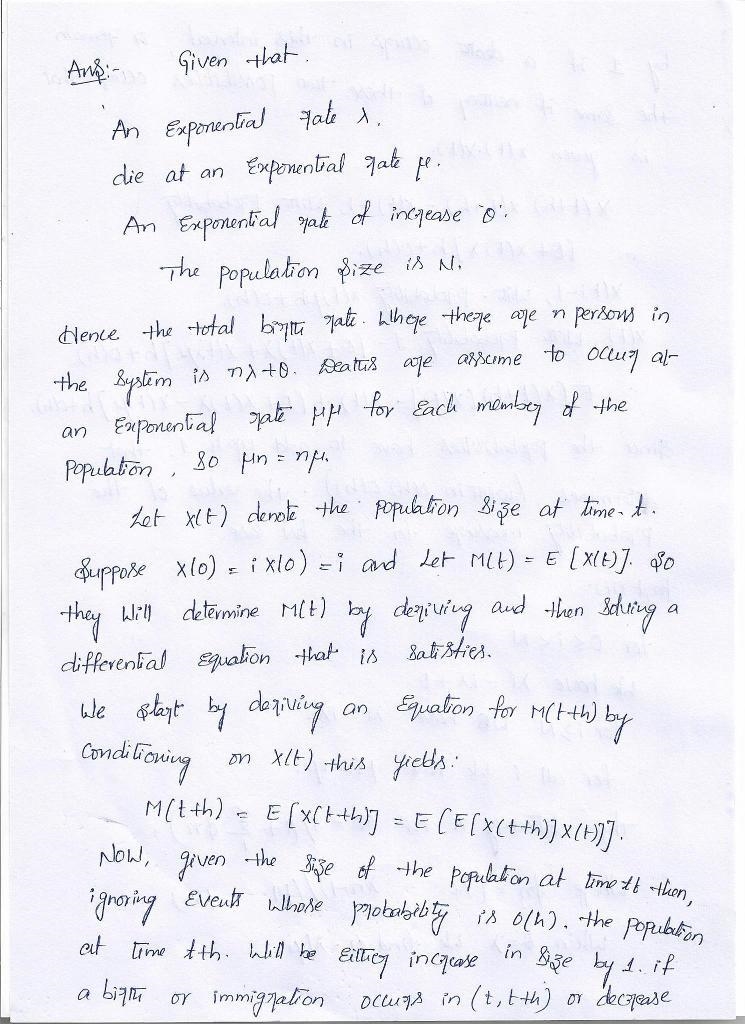 Ans:- Given that.
An Exponential rate λ.
die at an Exponential rate μ.
An Exponential rate of increase θ.
The population size is N.
Hence the total birth rate. Where there are n persons in
the System is nλ+θ. Deaths are assume to occur at
an Exponential rate μμ for Each member of the
Population, so μn = nμ.
Let X(t) denote the population size at time-t.
Suppose X(0) = i X(0) = i and Let M(t) = E [X(t)]. So
they will determine M(t) by deriving and then Solving a
differential Equation that is satisfies.
We start by deriving an Equation for M(t+h) by
Conditioning on X(t) this yields:
M(t+h) = E [X(t+h)] = E [E[X(t+h)] X(t)]].
Now, given the size of the population at time tb then,
ignoring Events whose probability is O(h). the population
at time t+h. Will be Either increase in size by 1. if
a birth or immigration occurs in (t, t+h) or decrease